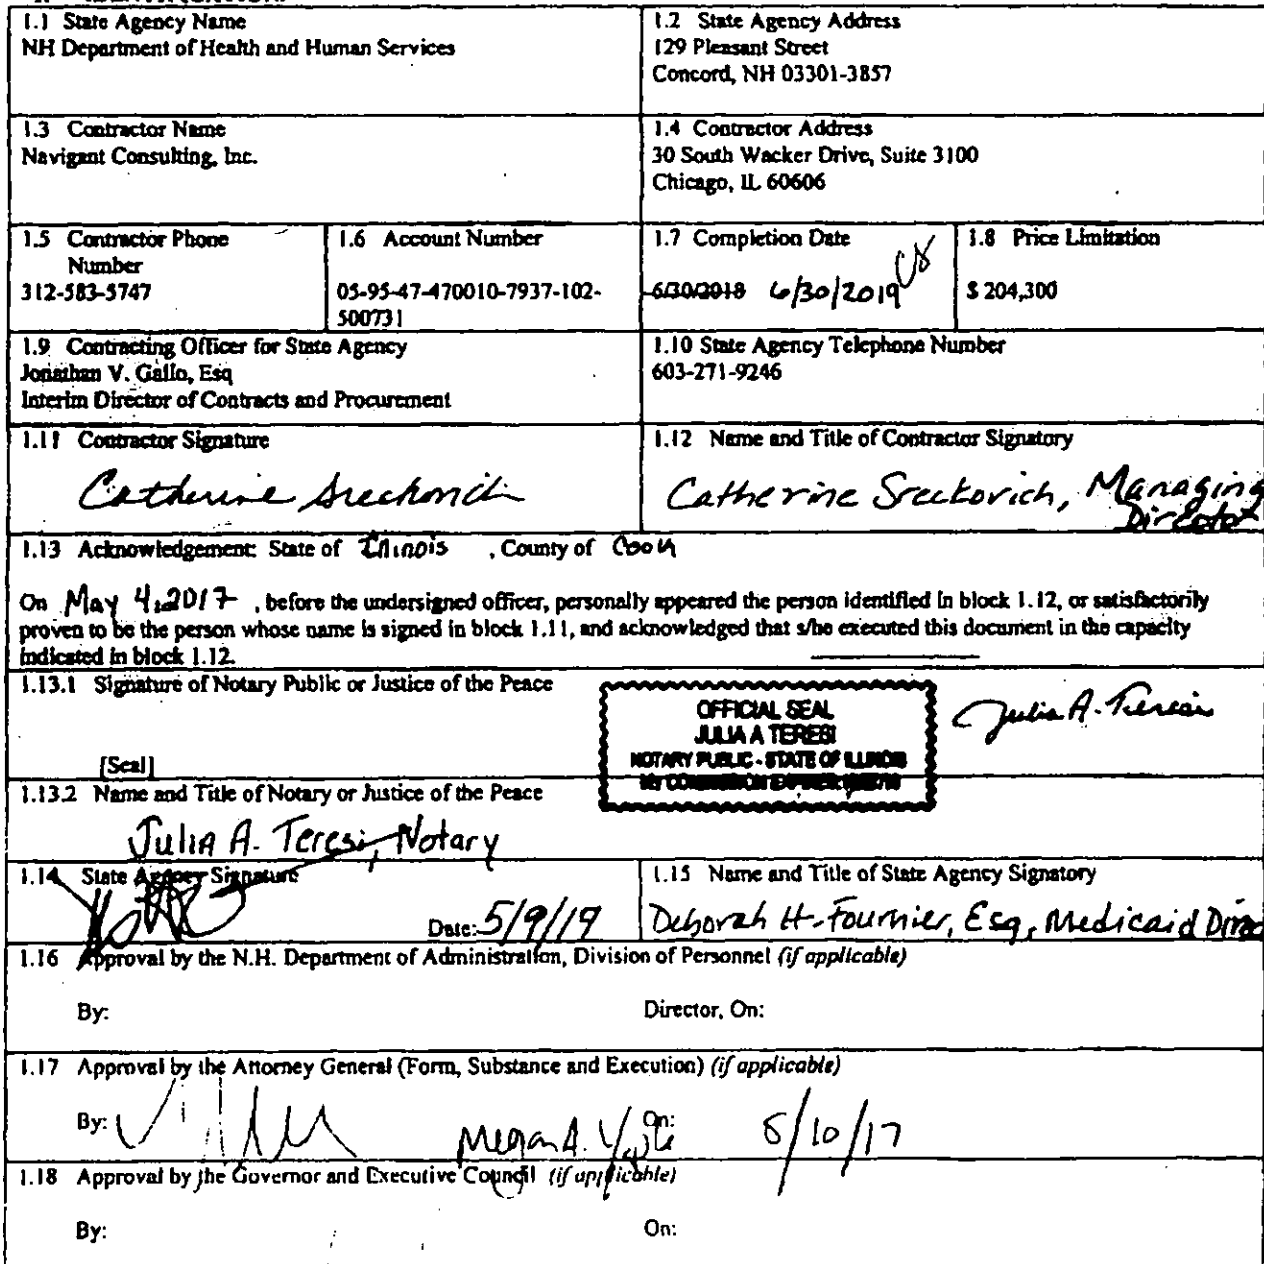 1.1 State Agency Name
NH Department of Health and Human Services
1.2 State Agency Address
129 Pleasant Street
Concord, NH 03301-3857
1.3 Contractor Name
Navigant Consulting, Inc.
1.4 Contractor Address
30 South Wacker Drive, Suite 3100
Chicago, IL 60606
1.5 Contractor Phone
Number
312-583-5747
1.6 Account Number
05-95-47-470010-7937-102-
500731
1.7 Completion Date
6/30/2018 6/30/2019 CS
1.8 Price Limitation
$ 204,300
1.9 Contracting Officer for State Agency
Jonathan V. Gallo, Esq
Interim Director of Contracts and Procurement
1.10 State Agency Telephone Number
603-271-9246
1.11 Contractor Signature
Catherine Sreckovich
1.12 Name and Title of Contractor Signatory
Catherine Sreckovich, Managing
Director
1.13 Acknowledgement: State of Illinois , County of Cook
On May 4, 2017 , before the undersigned officer, personally appeared the person identified in block 1.12, or satisfactorily
proven to be the person whose name is signed in block 1.11, and acknowledged that s/he executed this document in the capacity
indicated in block 1.12.
1.13.1 Signature of Notary Public or Justice of the Peace
[Seal]
OFFICIAL SEAL
JULIA A TERESI
NOTARY PUBLIC - STATE OF ILLINOIS
MY COMMISSION EXPIRES
Julia A. Teresi
1.13.2 Name and Title of Notary or Justice of the Peace
Julia A. Teresi, Notary
1.14 State Agency Signature
Date: 5/9/19
1.15 Name and Title of State Agency Signatory
Deborah H. Fournier, Esq, Medicaid Direc
1.16 Approval by the N.H. Department of Administration, Division of Personnel (if applicable)
By:
Director, On:
1.17 Approval by the Attorney General (Form, Substance and Execution) (if applicable)
By: Megan A. On: 5/10/17
1.18 Approval by the Governor and Executive Council (if applicable)
By:
On: